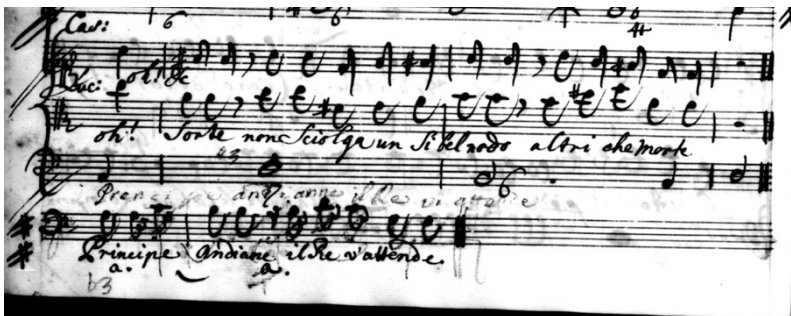 Cas:
6
6
4+
Luci oh! de
oh! Sorte non sciolga un si bel nodo altri che morte
b3
6
Prencipe andianne il Re vi attende
Principe Andiane il Re v'attende
a. a.
b3